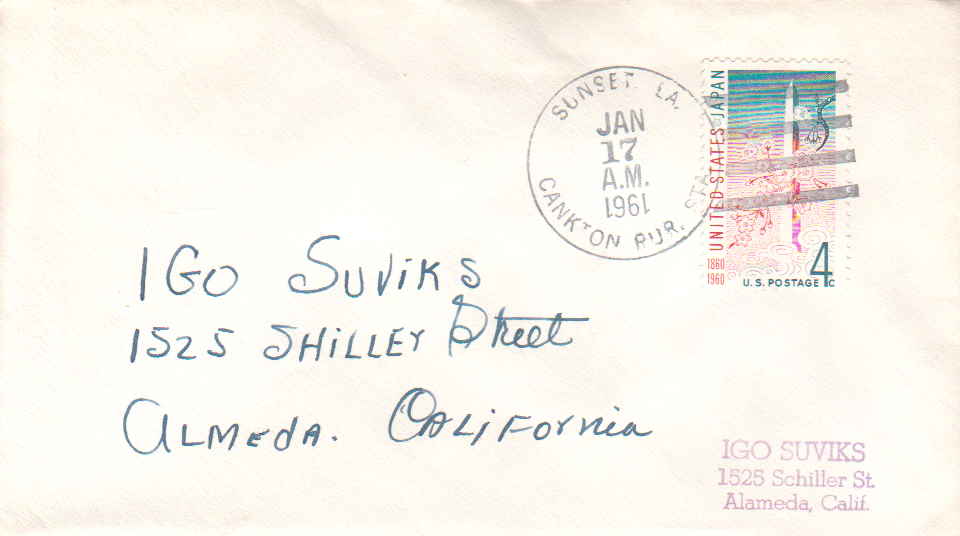 SUNSET, LA.
JAN
17
A.M.
1961
CANKTON RUR. STA.
UNITED STATES JAPAN
1860
1960
U.S. POSTAGE 4c
IGO SUVIKS
1525 SHILLEY Street
ALMEDA. CALIFORNIA
IGO SUVIKS
1525 Schiller St.
Alameda, Calif.